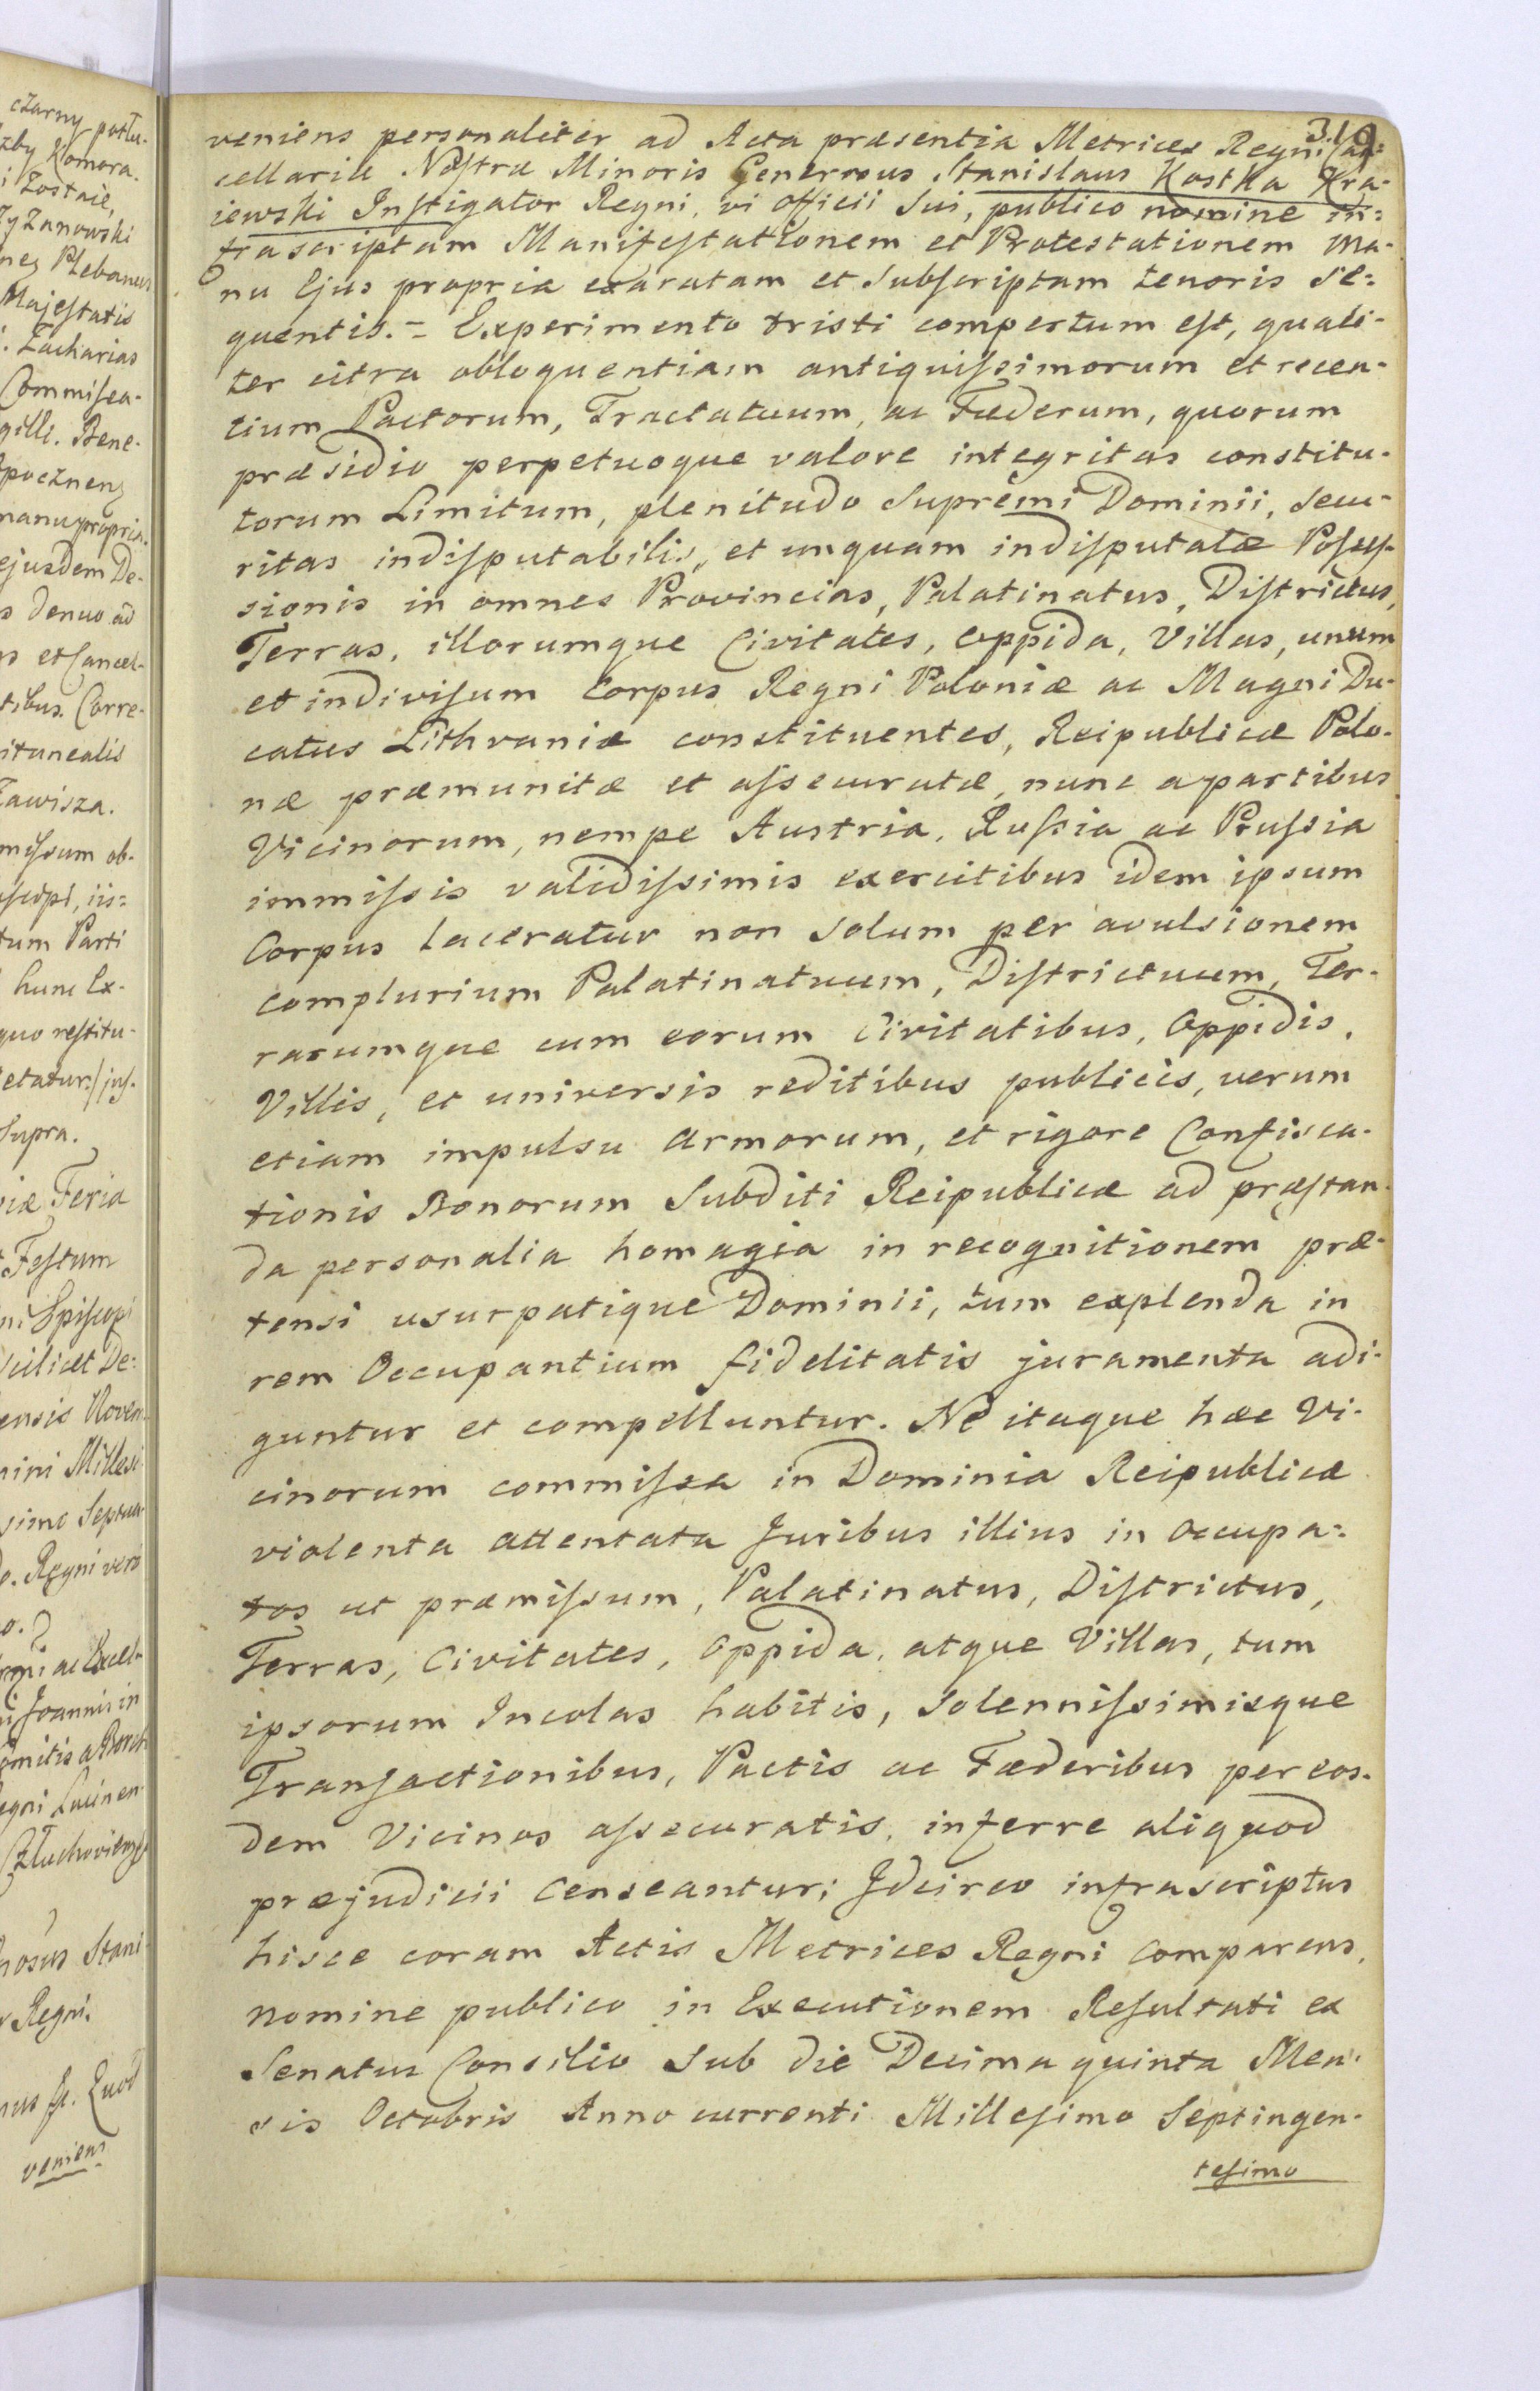 czarny postu-
zby Komora.
i Zostaie,
Plebanus
Majestatis
Zacharias
Commissa-
Bene-
manu propria.
ejusdem De-
denuo ad
et Cancel-
tibus. Corre-
Zawisza.
missum ob-
tum Parti
hunc Ex-
quo restitu-
etatur:/ jus-
Supra.
Feria
Festum
Episcopi
scilicet De:
ensis Novem
mini Millesi
simo Septua-
Regni vero
ac Excel-
Joannis in
omitis a Borch
egni
Stani-
Regni.
Quod
veniens
310
veniens personaliter ad Acta præsentia Metrices Regni Can=
cellariæ Nostræ Minoris Generosus Stanislaus Kostka Kra-
jewski Instigator Regni, vi officii Sui, publico nomine in=
frascriptam Manifestationem et Protestationem ma-
nu Ejus propria exaratam et Subscriptam tenoris Se=
quentis. = Experimento tristi compertum est, quali-
ter citra obloquentiam antiquissimorum et recen-
tium Pactorum, Tractatuum, ac Fæderum, quorum
præsidio perpetuoque valore integritas constitu-
torum Limitum, plenitudo Supremi Dominii, Secu-
ritas indisputabilis, et unquam indisputatæ Posses-
sionis in omnes Provincias, Palatinatus, Districtus,
Terras, illorumque Civitates, Oppida, Villas, unum
et indivisum Corpus Regni Poloniæ ac Magni Du-
catus Lithvaniæ constituentes, Reipublicæ Polo-
næ præmunitæ et assecuratæ, nunc a partibus
Vicinorum, nempe Austria, Russia ac Prussia
immissis validissimis exercitibus idem ipsum
Corpus laceratur non solum per avulsionem
complurium Palatinatuum, Districtuum, Ter-
rarumque cum eorum Civitatibus, Oppidis,
Villis, et universis reditibus publicis, verum
etiam impulsu armorum, et rigore Confisca-
tionis Bonorum Subditi Reipublicæ ad præstan-
da personalia homagia in recognitionem præ-
tensi usurpatique Dominii, tum explenda in
rem Occupantium fidelitatis juramenta adi-
guntur et compelluntur. Ne itaque hæc Vi-
cinorum commissa in Dominia Reipublicæ
violenta attentata Juribus illius in occupa=
tos ut præmissum, Palatinatus, Districtus,
Terras, Civitates, Oppida, atque Villas, tum
ipsorum Incolas habitis, solennissimisque
Transactionibus, Pactis ac Fæderibus per eos-
dem Vicinos assecuratis, inferre aliquod
præjudicii censeantur; Idcirco infrascriptus
hisce coram Actis Metrices Regni comparens,
nomine publico in Executionem Resultati ex
Senatus Consilio Sub die Decima quinta Men-
sis Octobris Anno currenti Millesimo Septingen-
tesimo